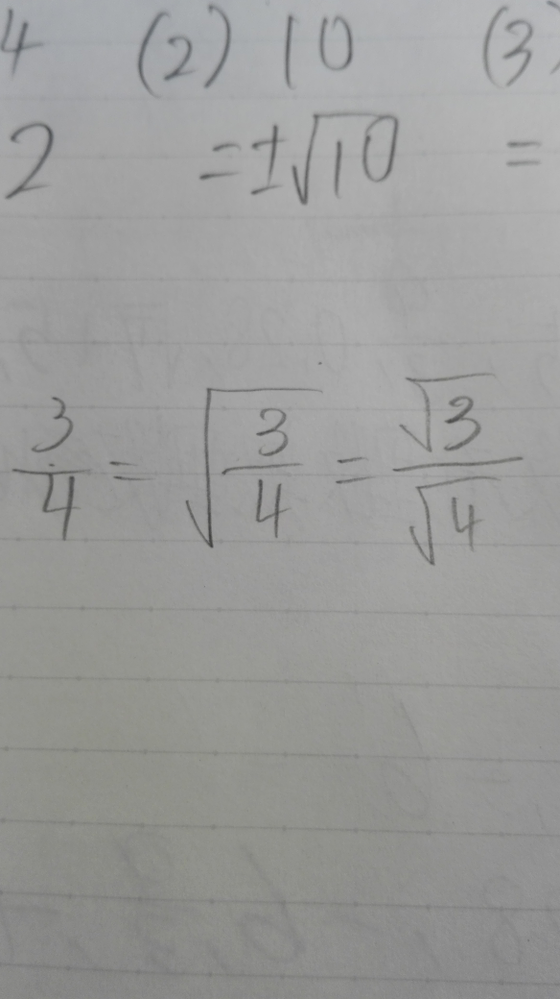 4 (2) 10 (3)
2 =±√10 =
3/4 = √(3/4) = √3/√4